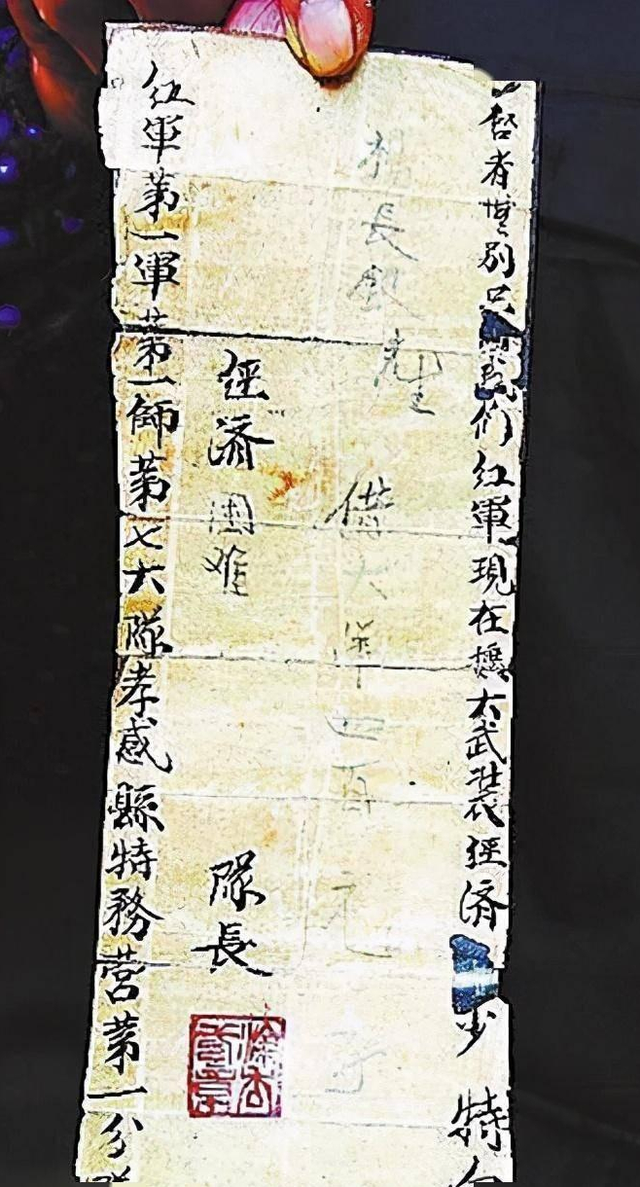 啓者世別只我们红軍現在扩大武装經济步特向
楊長銀先生
借大洋四百元
經济困难
隊長
红軍第一軍第一師第七大隊孝感縣特務营第一分隊